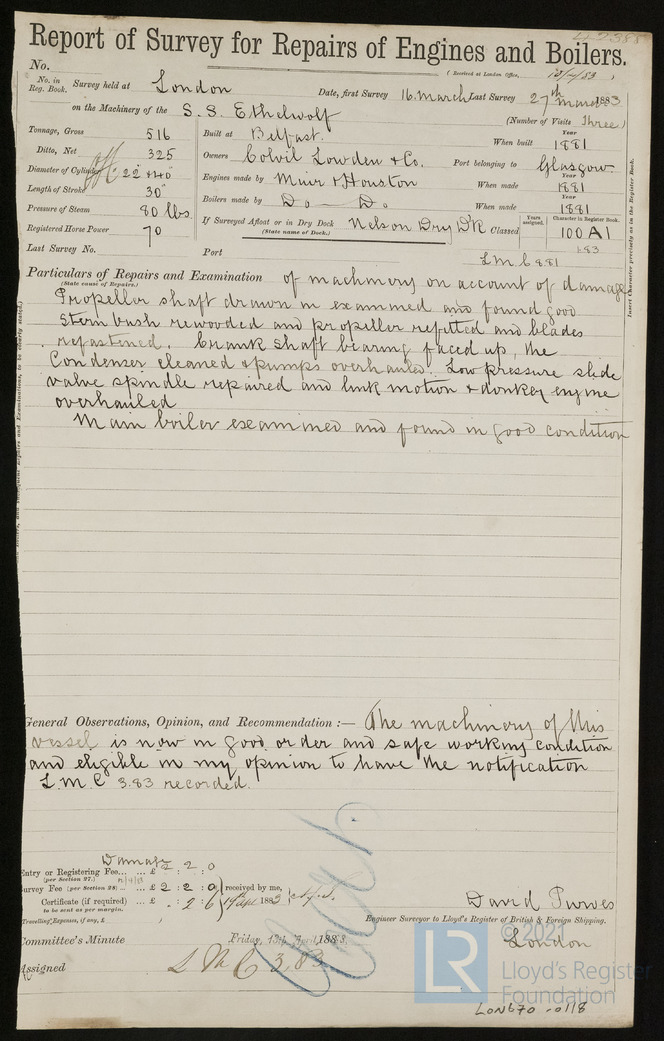 Report of Survey for Repairs of Engines and Boilers.
No.
(Received at London Office, 12/4/83)
No. in Reg. Book. Survey held at London Date, first Survey 16 March Last Survey 27th March 1883
on the Machinery of the S. S. Ethelwolf (Number of Visits Three)
Tonnage, Gross 516
Ditto, Net 325
Diameter of Cylinders 22" + 40"
Length of Stroke 30"
Pressure of Steam 80 lbs.
Registered Horse Power 70
Last Survey No. Port
Built at Belfast. When built Year 1881
Owners Colvil Lowden & Co. Port belonging to Glasgow
Engines made by Muir & Houston When made Year 1881
Boilers made by Do — Do When made Year 1881
If Surveyed Afloat or in Dry Dock Nelson Dry Dk Classed 100 A1
(State name of Dock.)
Years assigned. Character in Register Book.
1.83
L.M.C 8.81
Insert Character precisely as in the Register Book.
Particulars of Repairs and Examination of machinery on account of damage
(State cause of Repairs.)
Propeller shaft drawn in examined and found good
Stern bush rewooded and propeller refitted and blades
refastened. Crank shaft bearing faced up, the
Condenser cleaned & pumps overhauled. Low pressure slide
valve spindle repaired and link motion & donkey engine
overhauled
Main boiler examined and found in good condition
General Observations, Opinion, and Recommendation :— The machinery of this
vessel is now in good order and safe working condition
and eligible in my opinion to have the notification
L.M.C 3.83 recorded.
Damage
Entry or Registering Fee... ... £ 2 : 2 : 0
(per Section 27.)
Survey Fee (per Section 28) ... £ 2 : 2 : 0 received by me,
Certificate (if required) ... £ . : 2 : 6 1883
to be sent as per margin.
(Travelling Expenses, if any, £ )
David Purves
Engineer Surveyor to Lloyd's Register of British & Foreign Shipping.
London
Committee's Minute Friday, 13th April, 1883.
Assigned L M C 3.83
© 2021
LR
Lloyd's Register
Foundation
LON670-0118